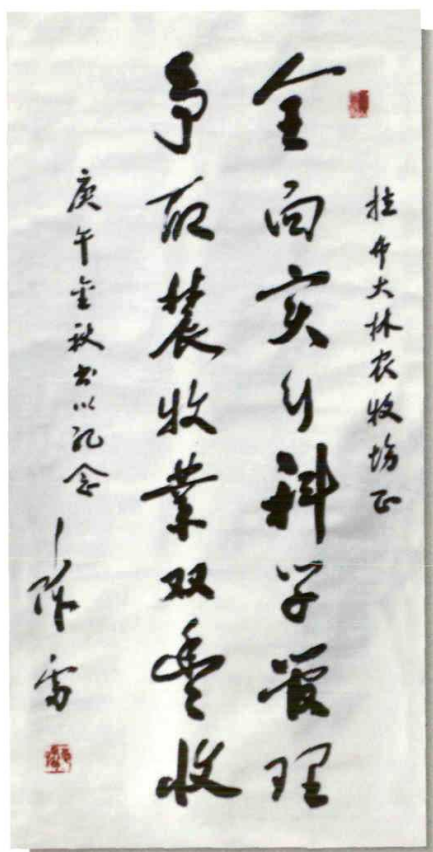 拉布大林农牧场正
全面实行科学管理
争取農牧业双丰收
庚午金秋书以纪念
陈雷